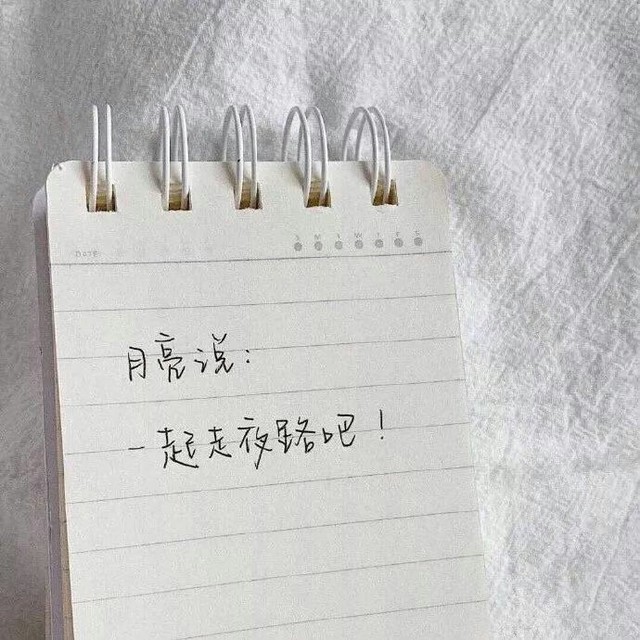 DATE:
S M T W T F S
月亮说:
一起走夜路吧!